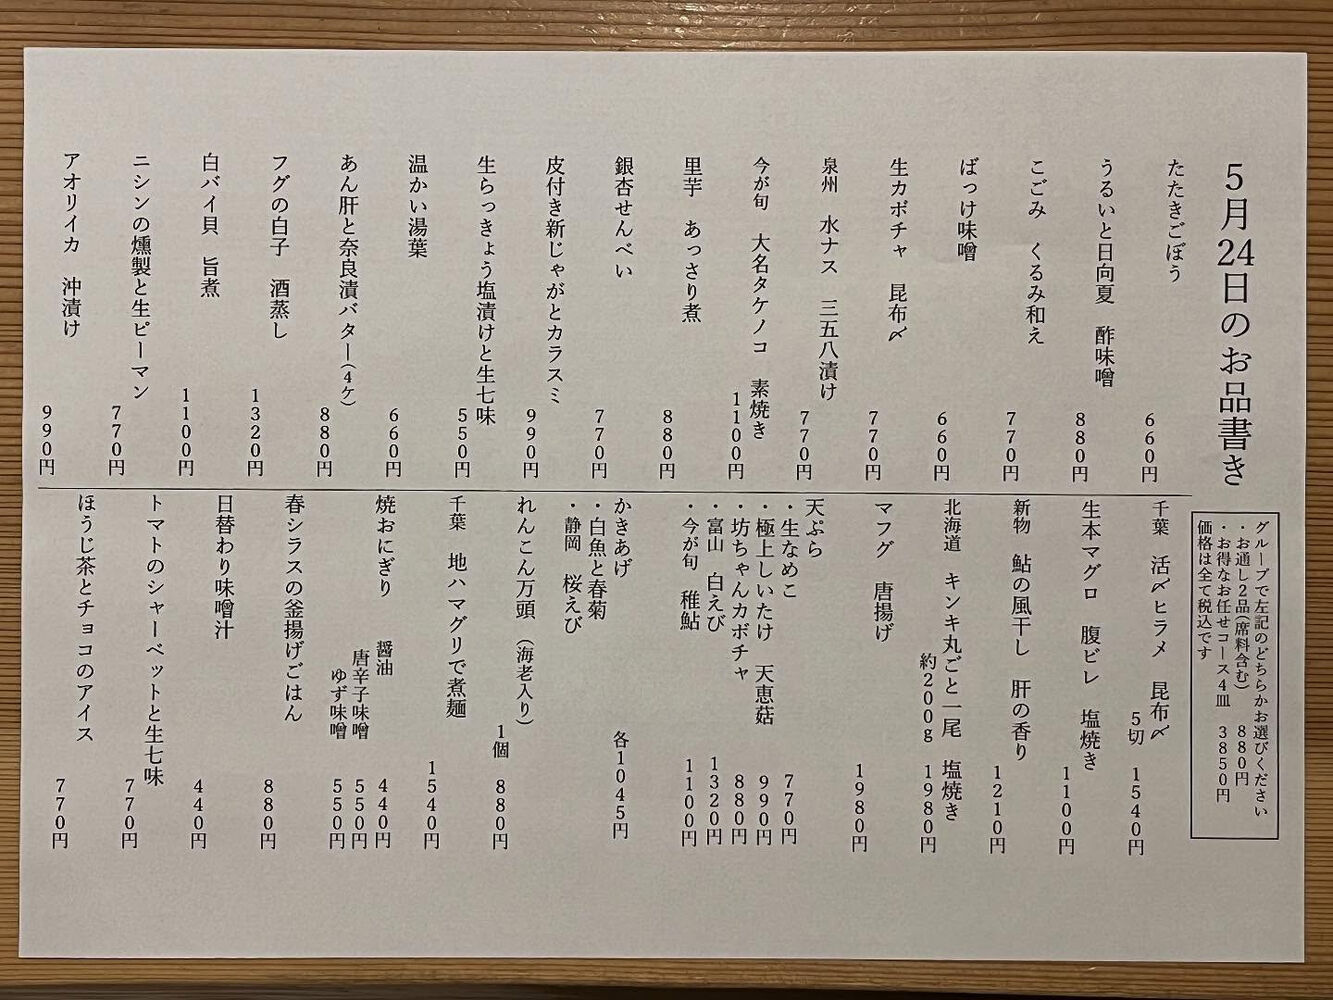 5月24日のお品書き
グループで左記のどちらかお選びください
・お通し2品(席料含む) 880円
・お得なお任せコース4皿 3850円
価格は全て税込です
たたきごぼう 660円
うるいと日向夏 酢味噌 880円
こごみ くるみ和え 770円
ばっけ味噌 660円
生カボチャ 昆布〆 770円
泉州 水ナス 三五八漬け 770円
今が旬 大名タケノコ 素焼き 1100円
里芋 あっさり煮 880円
銀杏せんべい 770円
皮付き新じゃがとカラスミ 990円
生らっきょう塩漬けと生七味 550円
温かい湯葉 660円
あん肝と奈良漬バター(4ケ) 880円
フグの白子 酒蒸し 1320円
白バイ貝 旨煮 1100円
ニシンの燻製と生ピーマン 770円
アオリイカ 沖漬け 990円
千葉 活〆ヒラメ 昆布〆
5切 1540円
生本マグロ 腹ビレ 塩焼き 1100円
新物 鮎の風干し 肝の香り 1210円
北海道 キンキ丸ごと一尾 塩焼き
約200g 1980円
マフグ 唐揚げ 1980円
天ぷら
・生なめこ 770円
・極上しいたけ 天恵菇 990円
・坊ちゃんカボチャ 880円
・富山 白えび 1320円
・今が旬 稚鮎 1100円
かきあげ 各1045円
・白魚と春菊
・静岡 桜えび
れんこん万頭 (海老入り)
1個 880円
千葉 地ハマグリで煮麺 1540円
焼おにぎり 醤油 440円
唐辛子味噌 550円
ゆず味噌 550円
春シラスの釜揚げごはん 880円
日替わり味噌汁 440円
トマトのシャーベットと生七味 770円
ほうじ茶とチョコのアイス 770円